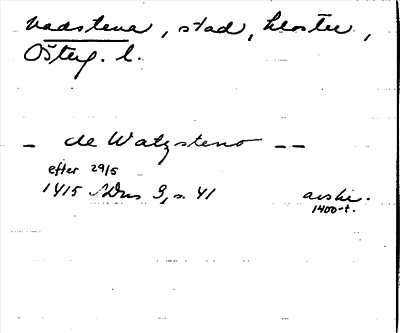 Vadstena, stad, kloster,
Österg. l.
– de Watzsteno – –
efter 29/5
1415 SDns 3, s. 41 avskr.
1400-t.